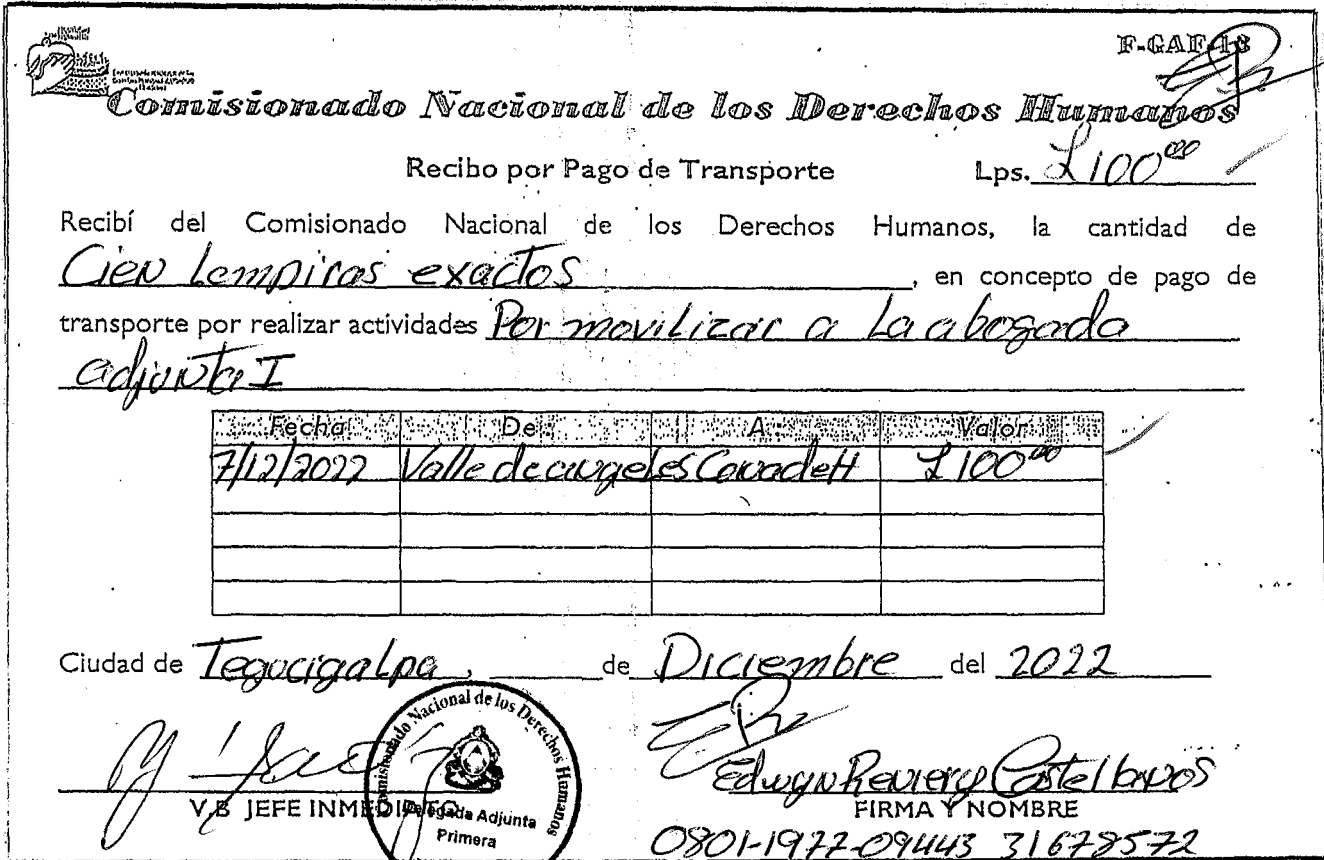 F-GAF-18
Comisionado Nacional de los Derechos Humanos
Recibo por Pago de Transporte Lps. L 100.00
Recibí del Comisionado Nacional de los Derechos Humanos, la cantidad de
Cien Lempiras exactos, en concepto de pago de
transporte por realizar actividades Por movilizar a La abogada
adjunta I
Fecha De A Valor
7/12/2022 Valle de angeles ConadeH L 100.00
Ciudad de Tegucigalpa, de Diciembre del 2022
Comisionado Nacional de los Derechos Humanos
Delegada Adjunta
Primera
Edwyn Castellanos
V.B JEFE INMEDIATO FIRMA Y NOMBRE
0801-1977-09443 31678572